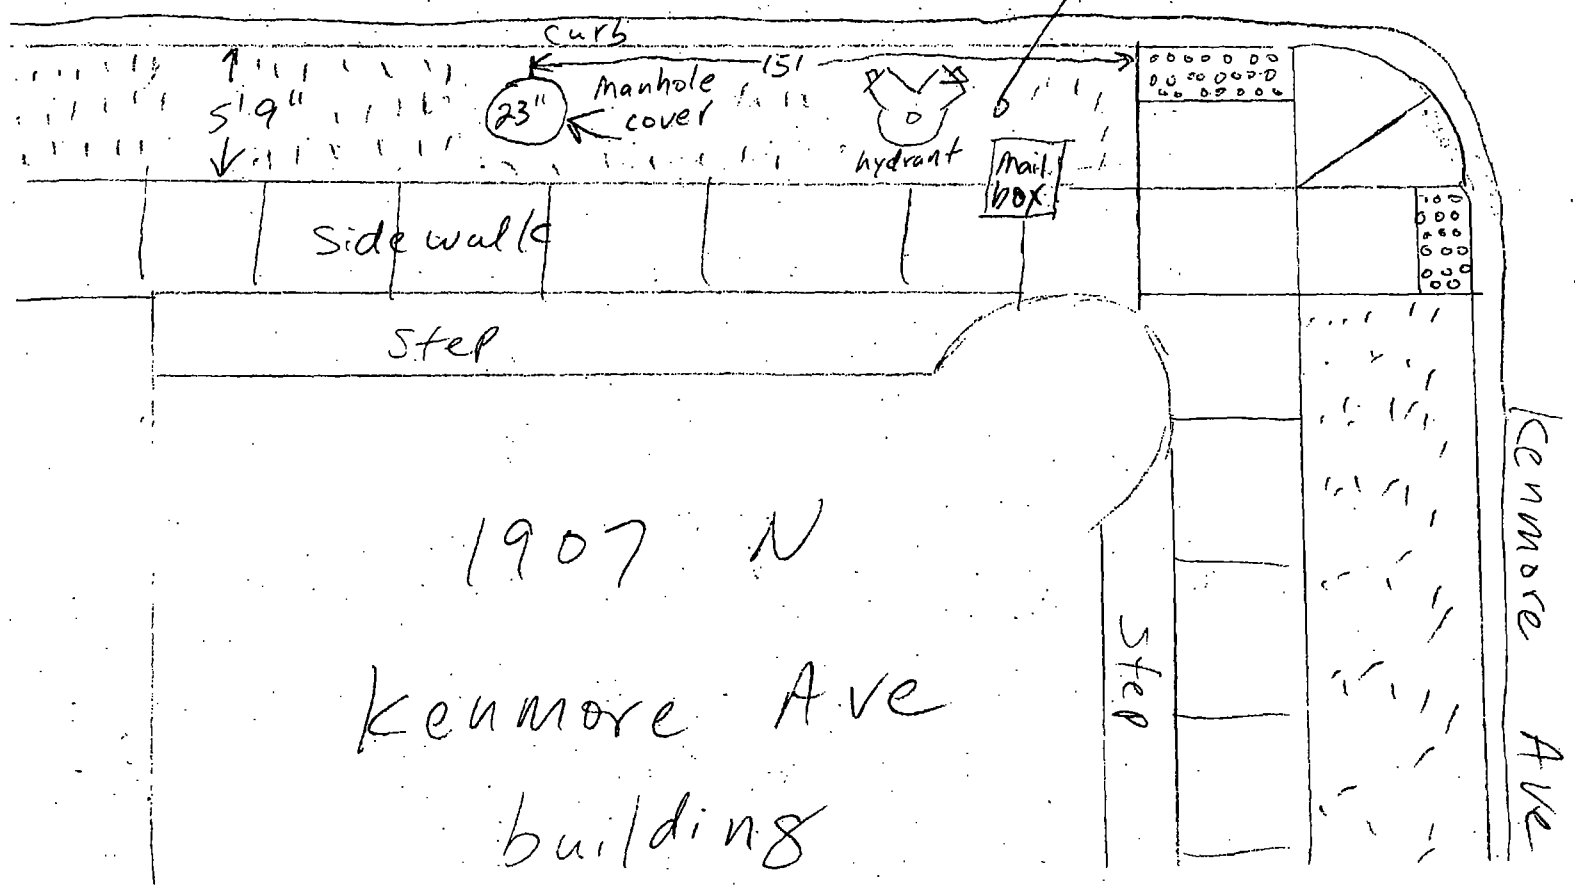 curb
15'
5'9"
23"
manhole
cover
hydrant
Mail
box
Sidewalk
Step
1907 N
Kenmore Ave
building
Step
Kenmore Ave